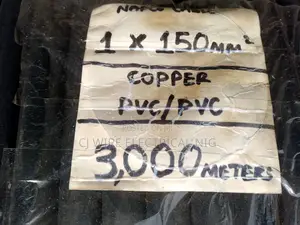 1 X 150MM²
COPPER
PVC/PVC
CJ WIRE ELECTRICAL NIG
3,000 METERS